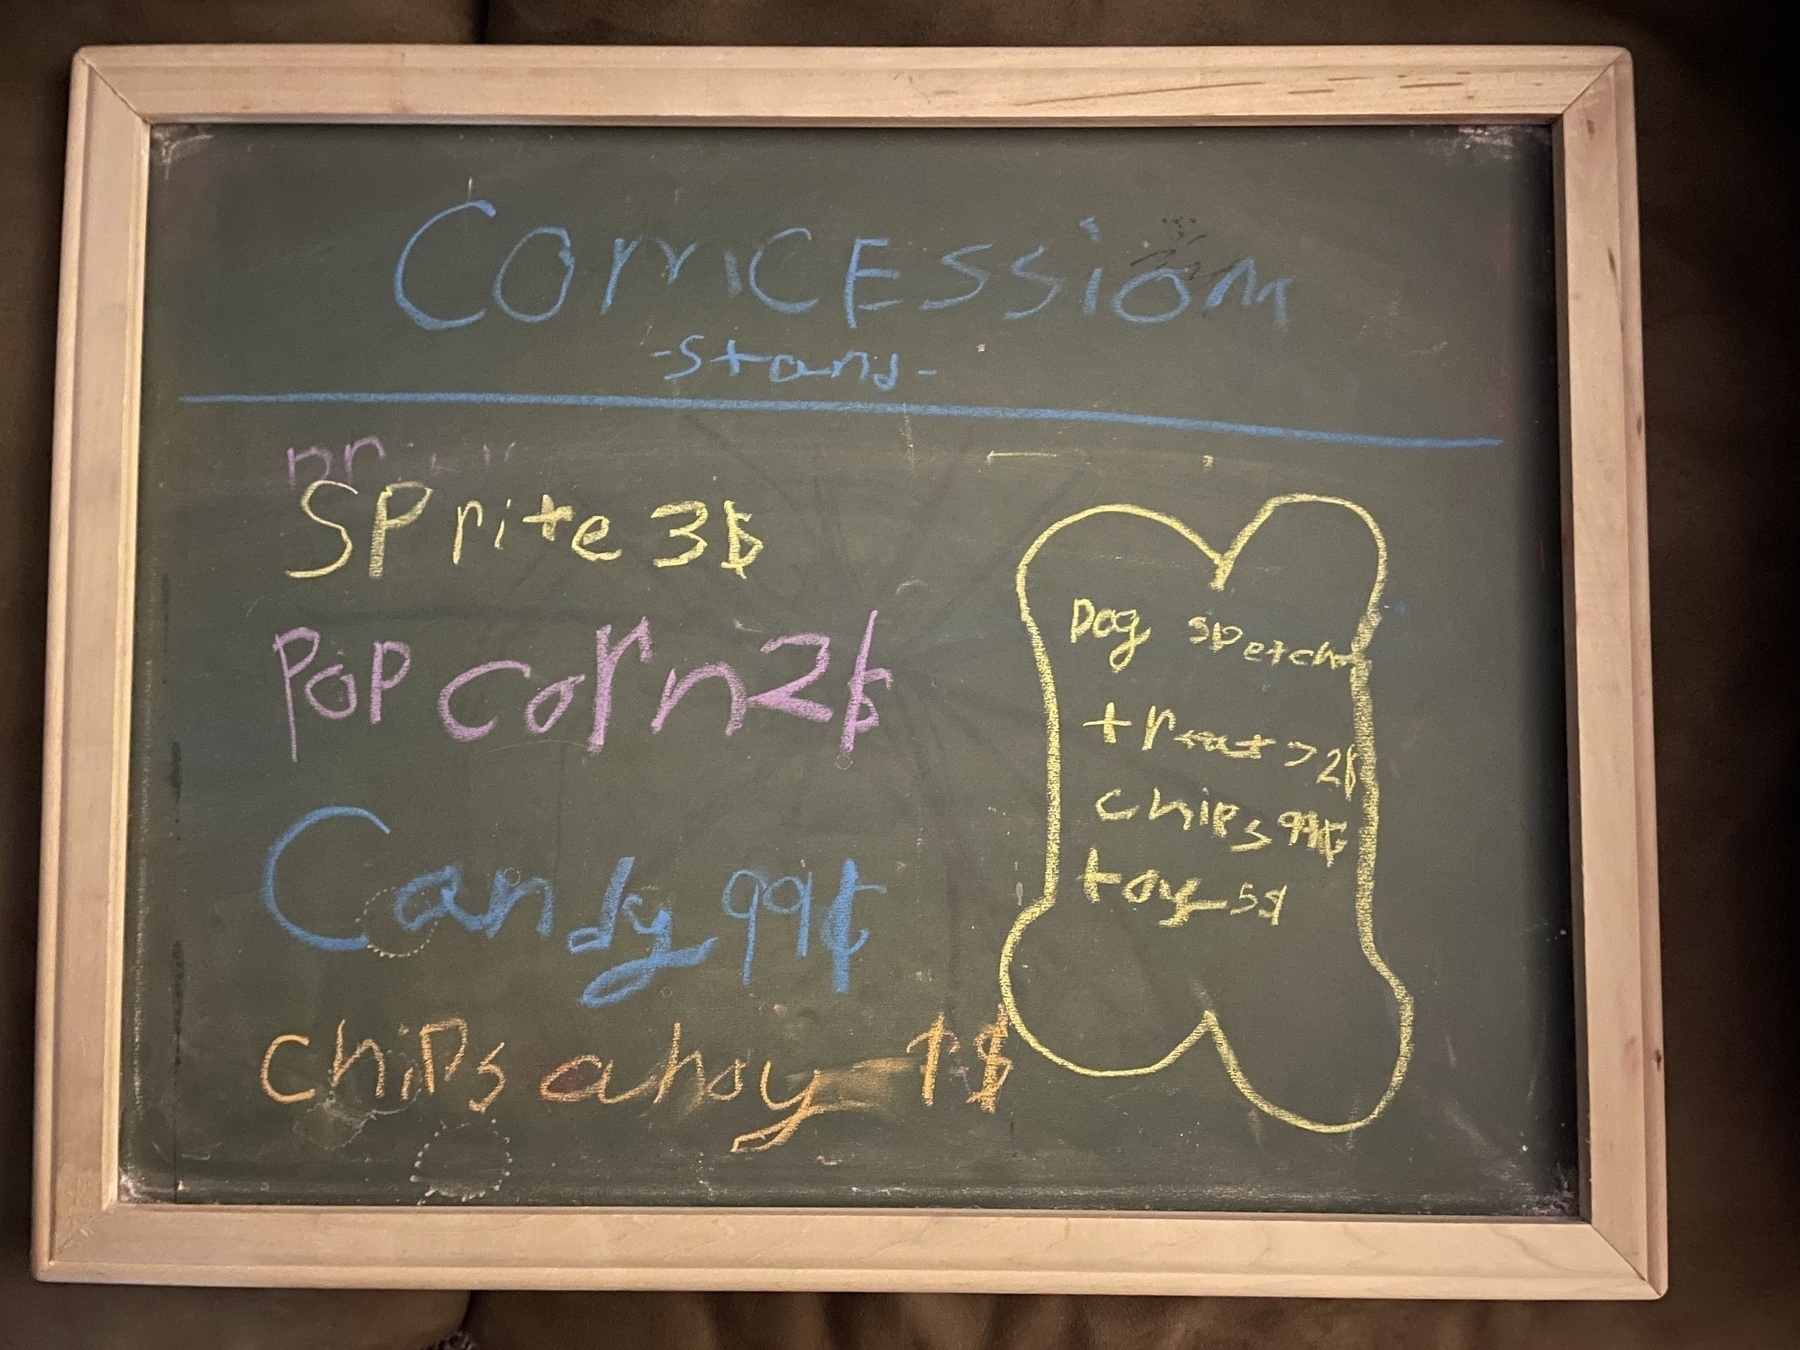 Concession
-stand-
Sprite 3$
Popcorn 2$
Candy 99¢
chips ahoy 1$
Dog spetch
treat > 2$
chips 99¢
toy 5$